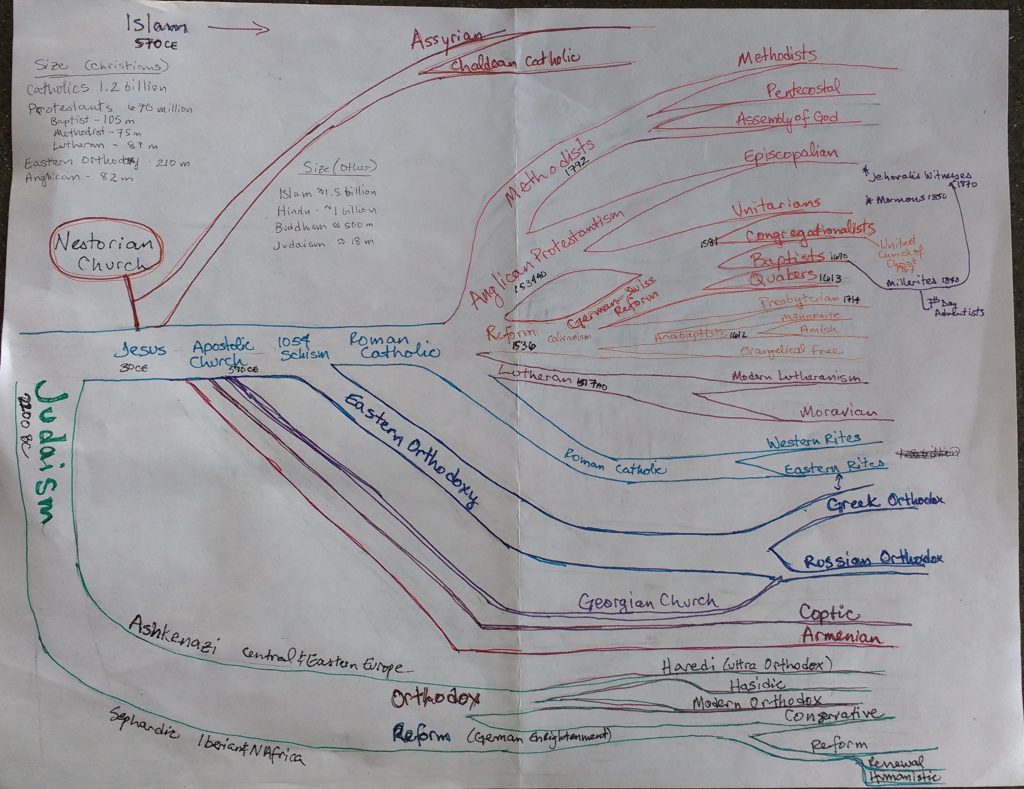 Islam
570 CE
Size (Christians)
Catholics 1.2 billion
Protestants - 670 million
Baptist - 105 m
Methodist - 75 m
Lutheran - 87 m
Eastern Orthodoxy - 210 m
Anglican - 82 m
Size (Other)
Islam ≈ 1.5 billion
Hindu - ~1 billion
Buddhism ≈ 500 m
Judaism ≈ 18 m
Nestorian
Church
Assyrian
Chaldean Catholic
Methodists
Pentecostal
Assembly of God
Methodists
1792
Episcopalian
Anglican Protestantism
1534AD
Unitarians
1581 Congregationalists
Baptists
Quakers
United
Church of
Christ
* Jehovah's Witnesses
1870
* Mormons
Millerites
7th Day
Adventists
German Swiss
Reform
Reform
1536
Calvanism
Presbyterian
Mennonite
Anabaptists
Amish
Evangelical Free
Lutheran 1517AD
Modern Lutheranism
Moravian
Jesus
30CE
Apostolic
Church
1054
Schism
Roman
Catholic
Roman Catholic
Western Rites
Eastern Rites
Eastern Orthodoxy
Greek Orthodox
Russian Orthodox
Georgian Church
Coptic
Armenian
Judaism
Ashkenazi Central & Eastern Europe
Sephardic Iberian & N Africa
Orthodox
Haredi (Ultra Orthodox)
Hasidic
Modern Orthodox
Reform (German Enlightenment)
Conservative
Reform
Renewal
Humanistic